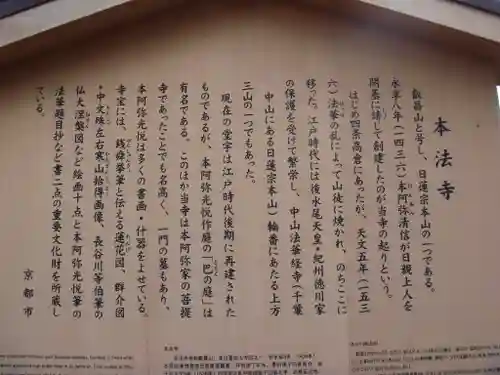 本法寺
叡昌山と号し、日蓮宗本山の一つである。
永享八年(一四三六)本阿弥清信が日親上人を
開基に請じて創建したのが当寺の起りという。
はじめ四条高倉にあったが、天文五年(一五三
六)法華の乱によって山徒に焼かれ、のちここに
移った。江戸時代には後水尾天皇・紀州徳川家
の保護を受けて繁栄し、中山法華経寺(千葉
中山にある日蓮宗本山)輪番にあたる上方
三山の一つでもあった。
現在の堂宇は江戸時代後期に再建された
ものであるが、本阿弥光悦作庭の「巴の庭」は
有名である。このほか当寺は本阿弥家の菩提
寺であったことでも名高く、一門の墓もあり、
本阿弥光悦は多くの書画・什器をよせている。
寺宝には、銭舜挙筆と伝える蓮花図、群介図
・中文殊左右寒山拾得画像、長谷川等伯筆の
仏大涅槃図など絵画十点と本阿弥光悦筆の
法華題目抄など書二点の重要文化財を所蔵し
ている。
京都市